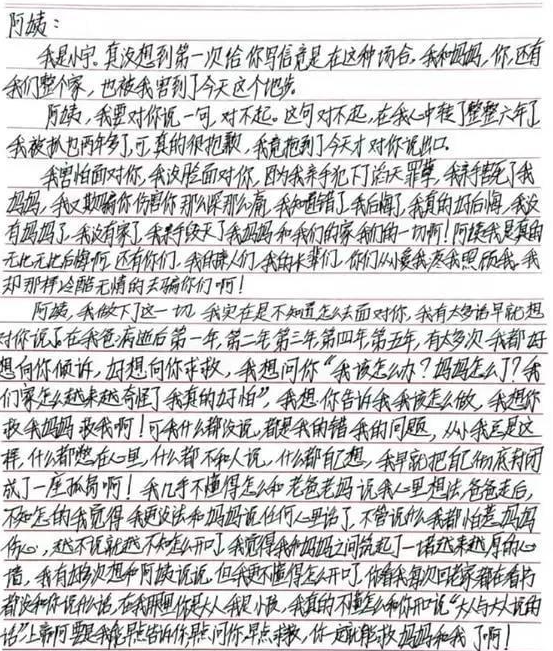 阿姨：
我是小宇。真没想到第一次给你写信竟是在这种场合。我和妈妈，你，还有
我们整个家，也被我害到了今天这个地步。
阿姨，我要对你说一句，对不起。这句对不起，在我心中转了整整六年了
我被抓也两年多了，可真的很抱歉，我竟拖到了今天才对你说出口。
我害怕面对你，我没脸面对你，因为我亲手犯下了滔天罪孽，我亲手害死了我
妈妈，我又欺骗你伤害你那么深那么痛，我知道错了我后悔了，我真的好后悔，我没
有妈妈了，我没有家了，我亲手毁灭了我妈妈和我们的家我们的一切啊！阿姨我是真的
无比无比后悔啊，还有你们，我的亲人们，我的长辈们，你们从小爱我疼我照顾我，我
却那样冷酷无情的去骗你们啊！
阿姨，我做下了这一切，我实在是不知道怎么去面对你，我有太多话早就想
对你说了。在我爸病逝后第一年，第二年第三年第四年第五年，有太多次我都好
想向你倾诉，好想向你求救，我想问你“我该怎么办？妈妈怎么了？我
们家怎么越来越奇怪了我真的好怕”，我想你告诉我我该怎么做，我想你
救我妈妈救我啊！可我什么都没说，都是我的错我的问题，从小我总是这
样，什么都憋在心里，什么都不和人说，什么都自己想，我早就把自己彻底封闭
成了一座孤岛啊！我几乎不懂得怎么和老爸老妈说我心里想法，爸爸走后，
不知怎的我觉得我更没法和妈妈说任何心里话了，不管说什么我都怕惹妈妈
伤心，越不说就越不知怎么开口了，我觉得我和妈妈之间筑起了一堵越来越厚的心
墙，我有好多次想和阿姨说说，但我更不懂得怎么开口了，你看我每次回老家都在看书
都没和你说什么话，在我那里你是大人我是小孩，我真的不懂怎么和你开口说“大人与大人说的
话”上啊阿要是我能早点告诉你，早点问你，早点求救，你一定就能救妈妈和我了啊！